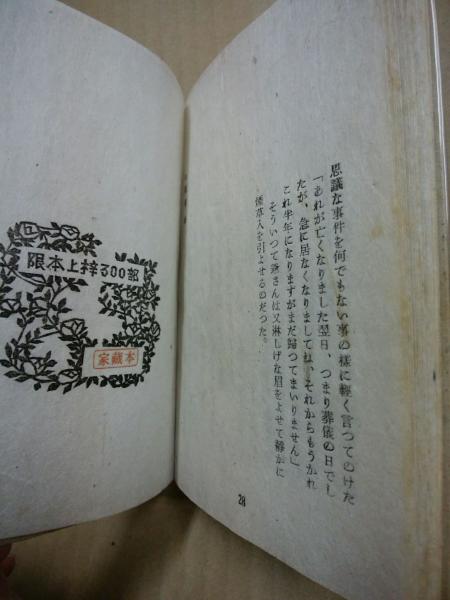 思議な事件を何でもない事の樣に輕く言つてのけた
「あれが亡くなりました翌日、つまり葬儀の日でし
たが、急に居なくなりましてね、それからもうかれ
これ半年になりますがまだ歸つてまいりません」
そういつて爺さんは又淋しげな眉をよせて靜かに
煙草入を引よせるのだつた。
28
限本上梓300部
家藏本